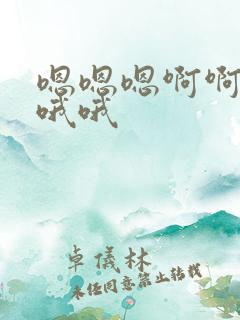 嗯嗯嗯啊啊
哦哦
卓儀林
未经同意禁止转载